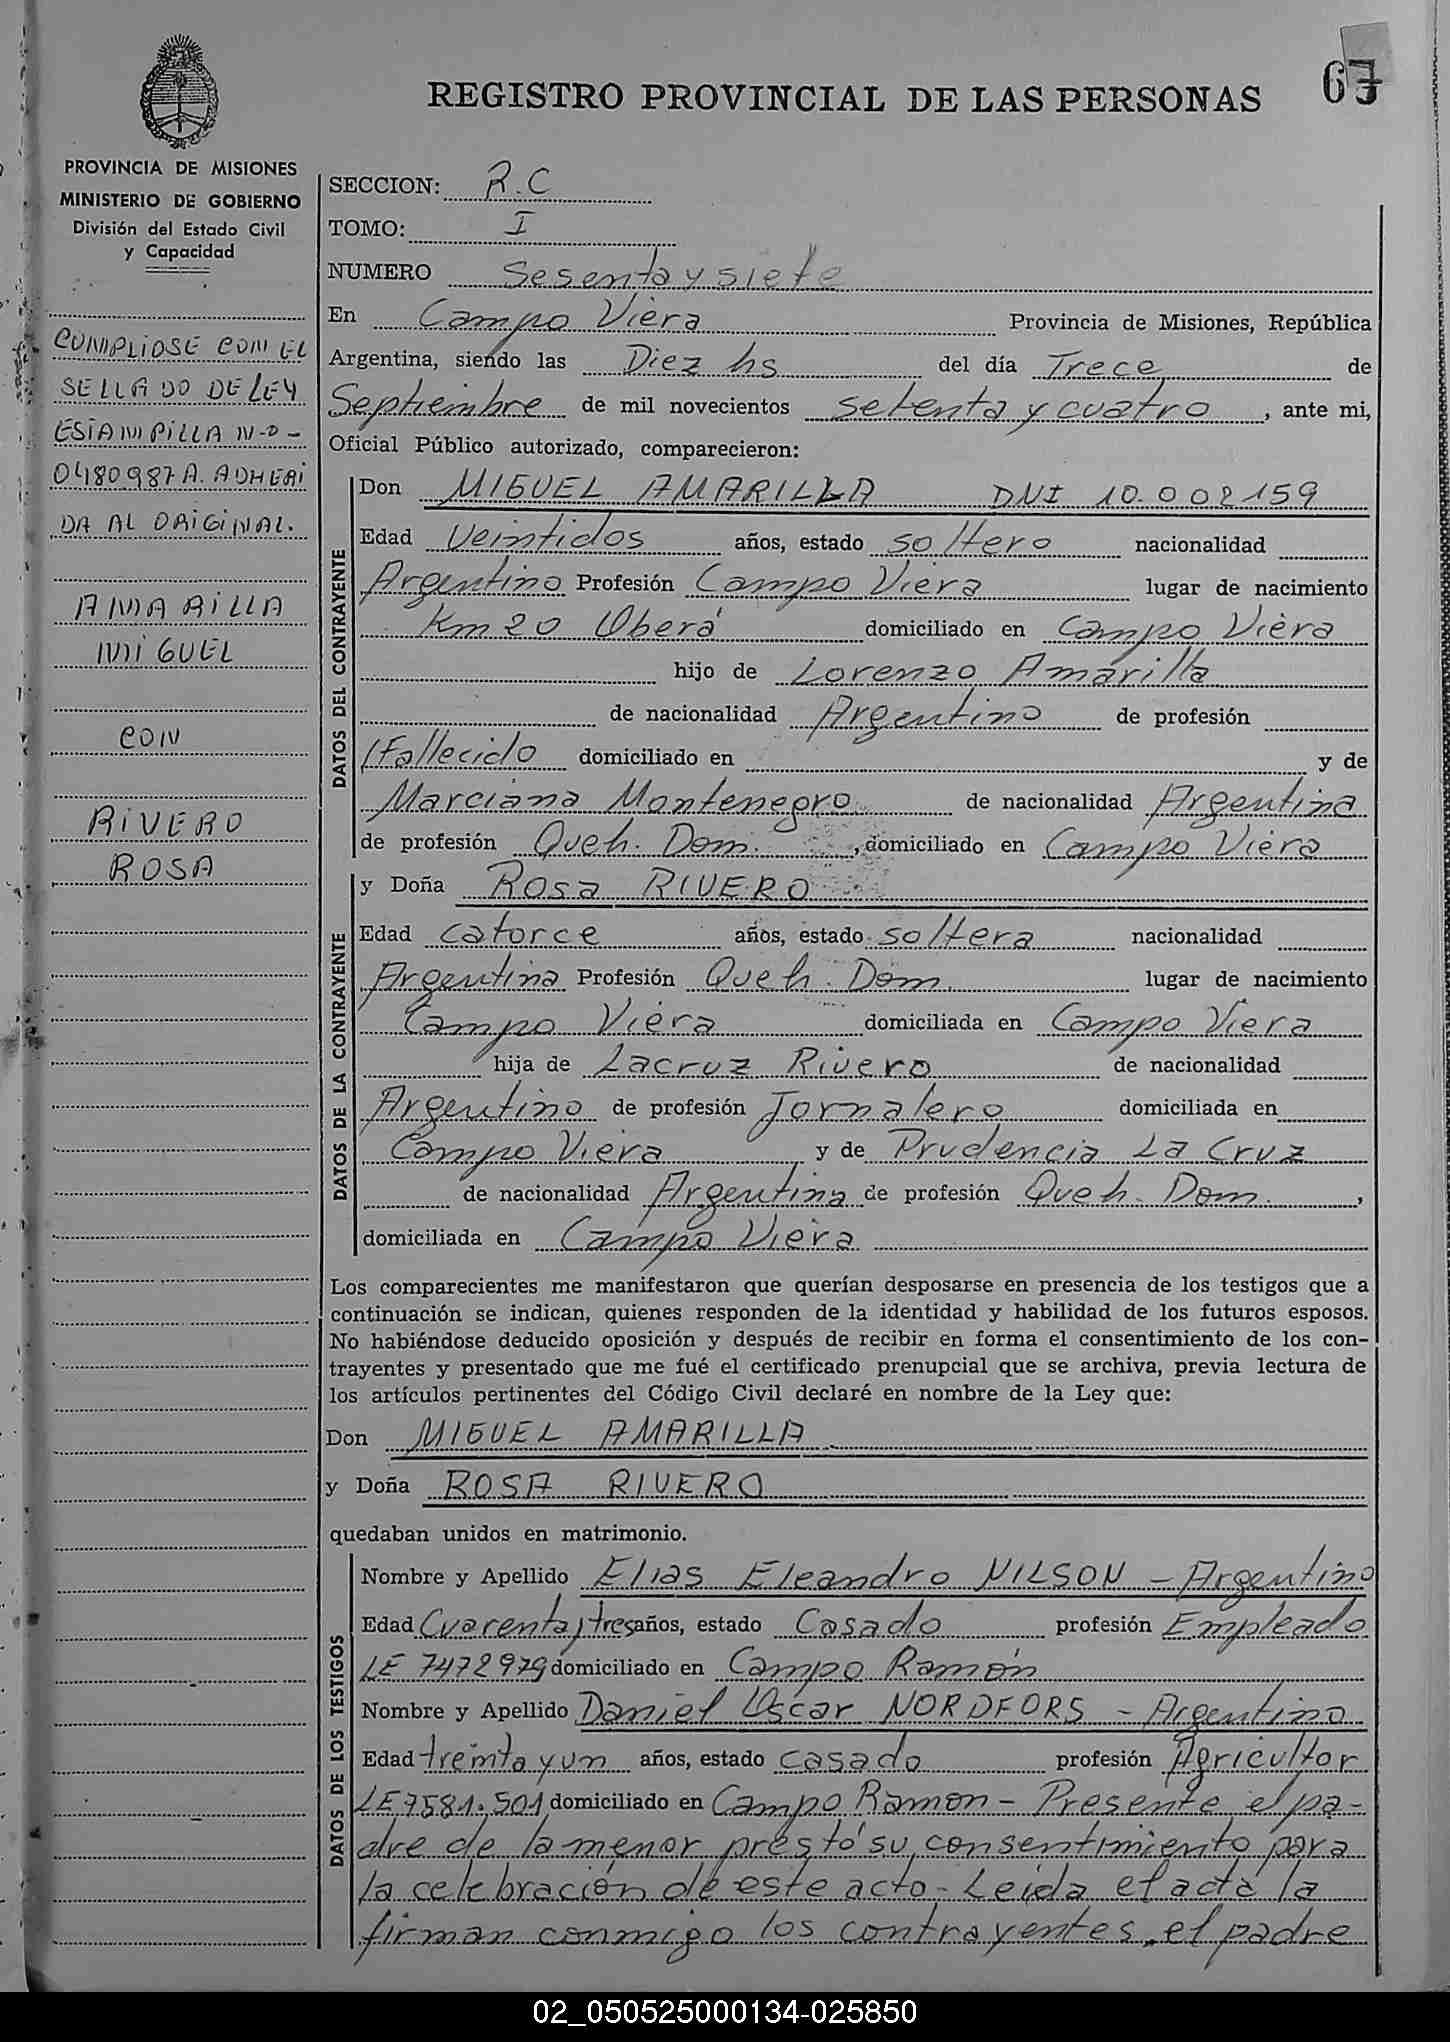 REGISTRO PROVINCIAL DE LAS PERSONAS
67
PROVINCIA DE MISIONES
MINISTERIO DE GOBIERNO
División del Estado Civil
y Capacidad
CUMPLIOSE CON EL
SELLADO DE LEY
ESTAMPILLA N-o-
0480987A. ADHERI
DA AL ORIGINAL.
AMARILLA
MIGUEL
CON
RIVERO
ROSA
SECCION: R.C
TOMO: I
NUMERO Sesenta y siete
En Campo Viera Provincia de Misiones, República
Argentina, siendo las Diez hs del día Trece de
Septiembre de mil novecientos setenta y cuatro, ante mi,
Oficial Público autorizado, comparecieron:
DATOS DEL CONTRAYENTE
Don MIGUEL AMARILLA DNI 10.002159
Edad Veintidos años, estado soltero nacionalidad
Argentino Profesión Campo Viera lugar de nacimiento
Km 20 Oberá domiciliado en Campo Viera
hijo de Lorenzo Amarilla
de nacionalidad Argentino de profesión
(Fallecido domiciliado en y de
Marciana Montenegro de nacionalidad Argentina
de profesión Queh. Dom. , domiciliado en Campo Viera
DATOS DE LA CONTRAYENTE
y Doña Rosa RIVERO
Edad catorce años, estado soltera nacionalidad
Argentina Profesión Queh. Dom. lugar de nacimiento
Campo Viera domiciliada en Campo Viera
hija de Lacruz Rivero de nacionalidad
Argentino de profesión Jornalero domiciliada en
Campo Viera y de Prudencia La Cruz
de nacionalidad Argentina de profesión Queh. Dom. ,
domiciliada en Campo Viera
Los comparecientes me manifestaron que querían desposarse en presencia de los testigos que a
continuación se indican, quienes responden de la identidad y habilidad de los futuros esposos.
No habiéndose deducido oposición y después de recibir en forma el consentimiento de los con-
trayentes y presentado que me fué el certificado prenupcial que se archiva, previa lectura de
los artículos pertinentes del Código Civil declaré en nombre de la Ley que:
Don MIGUEL AMARILLA
y Doña ROSA RIVERO
quedaban unidos en matrimonio.
DATOS DE LOS TESTIGOS
Nombre y Apellido Elias Eleandro NILSON - Argentino
Edad Cuarenta y tres años, estado Casado profesión Empleado
LE 7472979 domiciliado en Campo Ramón
Nombre y Apellido Daniel Oscar NORDFORS - Argentino
Edad treinta y un años, estado casado profesión Agricultor
LE 7581.501 domiciliado en Campo Ramon - Presente el pa-
dre de la menor prestó su consentimiento para
la celebración de este acto - Leida el acta la
firman conmigo los contrayentes, el padre
02_050525000134-025850